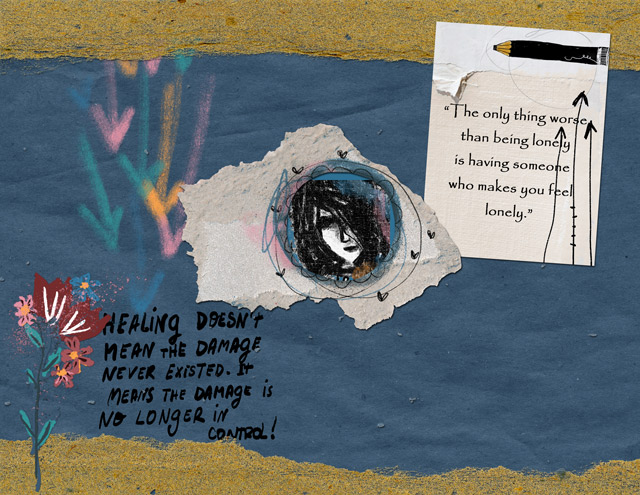 “The only thing worse
than being lonely
is having someone
who makes you feel
lonely.”
HEALING DOESN'T
MEAN THE DAMAGE
NEVER EXISTED. It
MEANS THE DAMAGE is
NO LONGER IN
CONTROL!